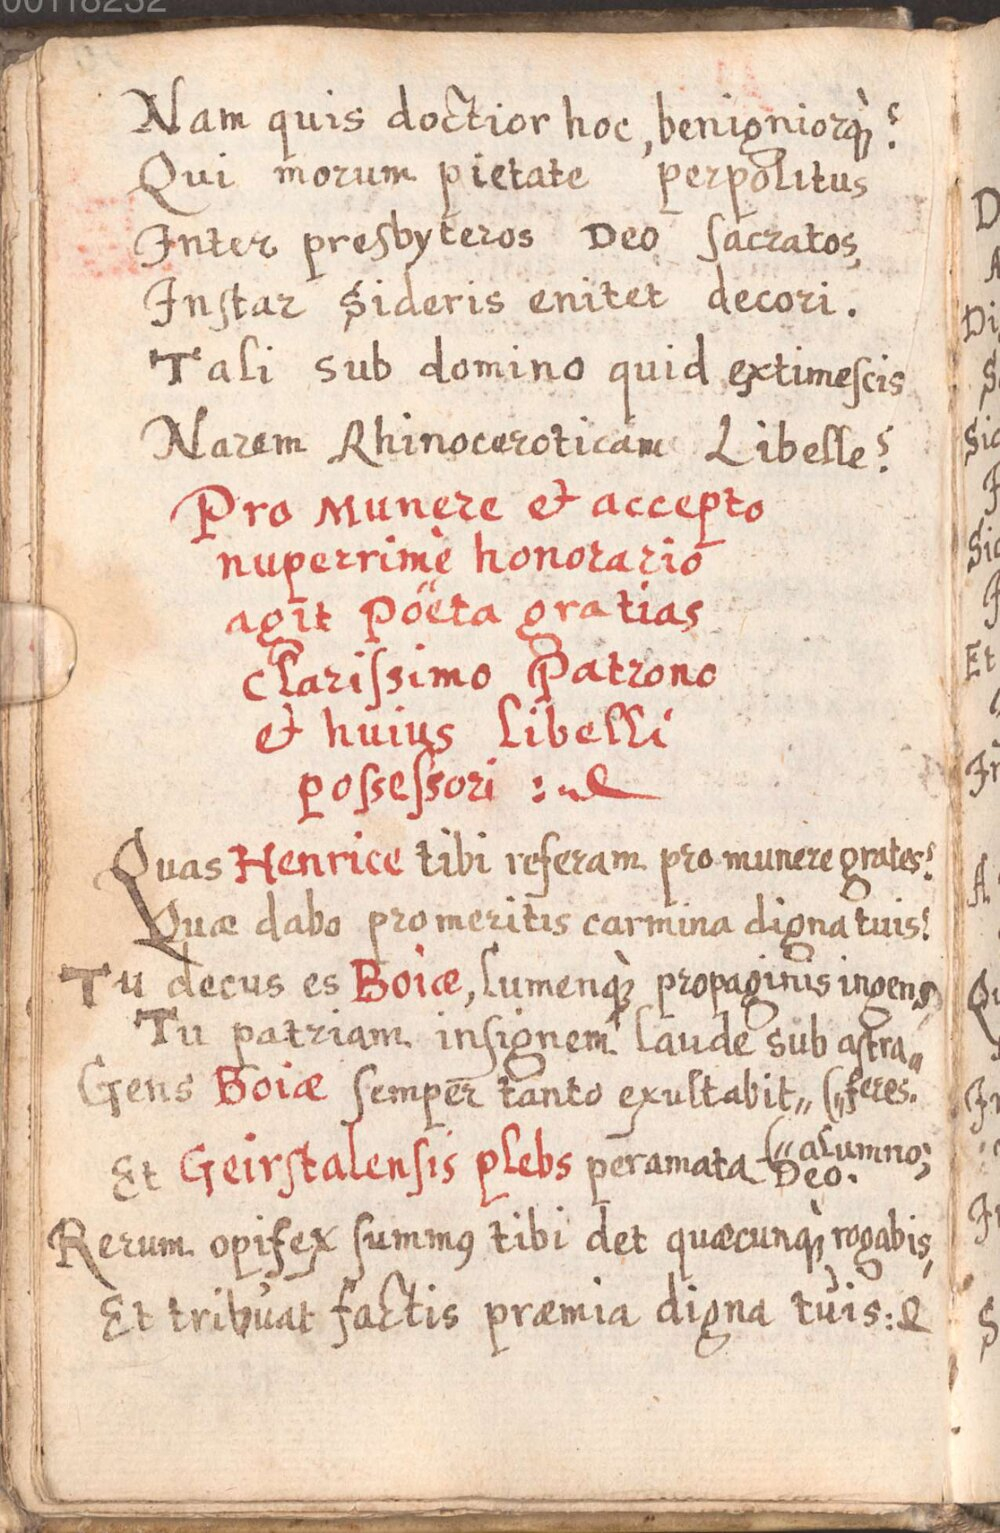 Nam quis doctior hoc, benigniorq̀ꝫ?
Qui morum pietate perpolitus
Inter presbyteros Deo sacratos,
Instar Sideris enitet decori.
Tali sub domino quid extimescis
Narem Rhinoceroticam Libelle?
Pro Munere et accepto
nuperrimè honorario
agit Poëta gratias
clarissimo Patrono
et huius libelli
possessori :
Quas Henrice tibi referam pro munere grates?
Quæ dabo pro meritis carmina digna tuis?
Tu decus es Boiæ, lumenq̀ꝫ propaginis ingens,
Tu patriam insignem laude sub astra„
Gens Boiæ semper tanto exultabit„ („feres.
Et Geirstalensis plebs peramata („alumno;
Deo.
Rerum opifex summꝰ tibi det quæcunq̀ꝫ rogabis,
Et tribuat factis præmia digna tuis: